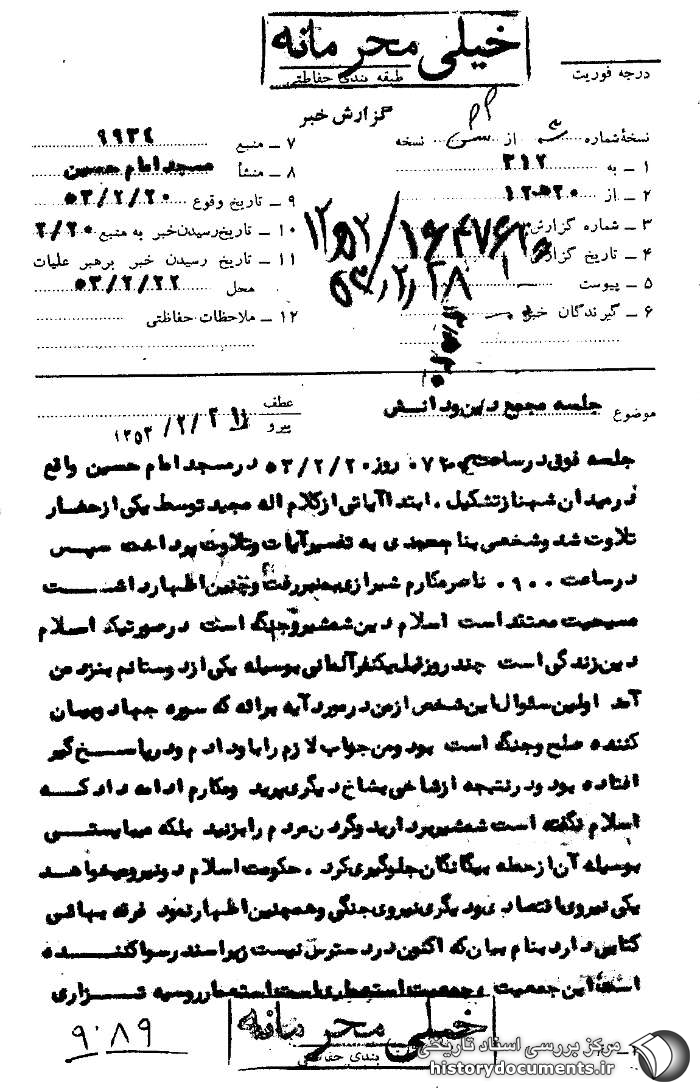 خیلی محرمانه
طبقه بندی حفاظتی
درجه فوریت
گزارش خبر
نسخهٔ شماره از نسخه
۱ ــ به ۳۱۲
۲ ــ از ۲۰ه۱۲
۳ ــ شماره گزارش
۴ ــ تاریخ گزارش
۵ ــ پیوست
۶ ــ گیرندگان خبر
۷ ــ منبع ۹۹۳٤
۸ ــ منشأ مسجد امام حسین
۹ ــ تاریخ وقوع ۵۳/۲/۲۰
۱۰ ــ تاریخ رسیدن خبر به منبع ۲/۲۰
۱۱ ــ تاریخ رسیدن خبر برهبر عملیات
محل ۵۳/۲/۲۲
۱۲ ــ ملاحظات حفاظتی
۵۳/۲/۲۸
موضوع جلسه مجمع دین و دانش
عطف
پیرو
جلسه فوق در ساعت ۰۷۳۰ روز ۵۳/۲/۲۰ در مسجد امام حسین واقع
در میدان شهناز تشکیل . ابتدا آیاتی از کلام اله مجید توسط یکی از حضار
تلاوت شد و شخصی بنام حمدی به تفسیر آیات و تلاوت پرداخت سپس
در ساعت ۰۹۰۰ ناصر مکارم شیرازی به منبر رفت و چنین اظهار داشت
مسیحیت معتقد است اسلام دین شمشیر و جنگ است در صورتیکه اسلام
دین زندگی است چند روز قبل یکنفر آلمانی بوسیله یکی از دوستانم بنزد من
آمد اولین سئوال این شخص از من در مورد آیه برائه که سوره جهاد و بیان
کننده صلح و جنگ است بود و من جواب لازم را باو دادم و در پاسخ گیر
افتاده بود و در نتیجه از شاخی بشاخ دیگری پرید ومکارم ادامه داد که
اسلام نگفته است شمشیر بردارید و گردن مردم را بزنید بلکه میبایستی
بوسیله آن از حمله بیگانگان جلوگیری کرد . حکومت اسلام دو نیرو میخواهد
یکی نیروی اقتصادی و دیگری نیروی جنگی و همچنین اظهار نمود فرقه بهائی
کتابی دارد بنام بیان که اکنون در دسترس نیست زیرا سند رسوا کننده
است این جمعیت ، جمعیت استعماری است استعمار روسیه تزاری
خیلی محرمانه
طبقه بندی حفاظتی
۹۰۸۹
مرکز بررسی اسناد تاریخی
historydocuments.ir